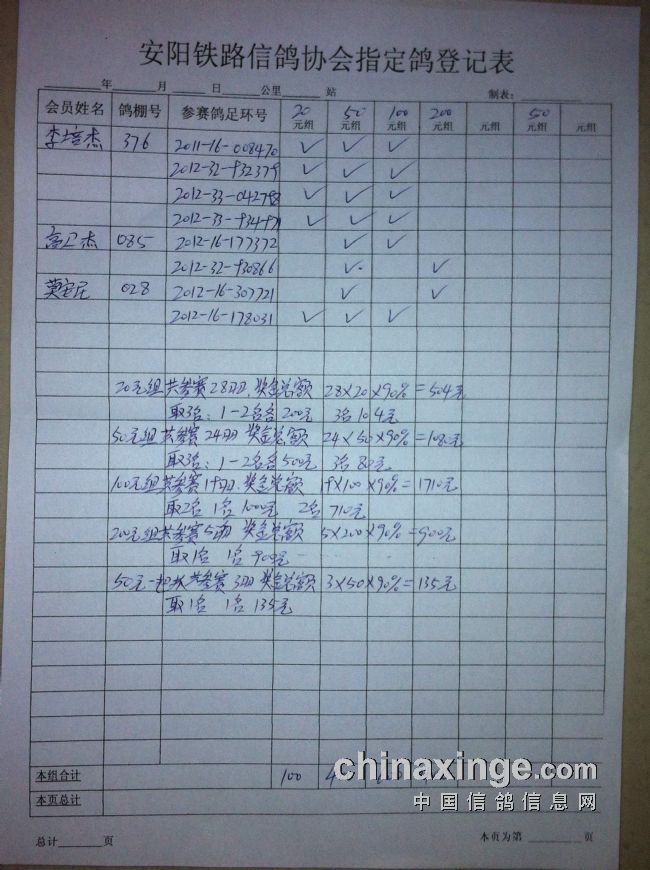 安阳铁路信鸽协会指定鸽登记表
年 月 日 公里 站 制表：
会员姓名 鸽棚号 参赛鸽足环号 20元组 50元组 100元组 200元组 元组 50元组 元组
李培杰 376 2011-16-008470 ✓ ✓ ✓
2012-32-932379 ✓ ✓ ✓
2012-33-042798 ✓ ✓ ✓
2012-33-934971 ✓ ✓ ✓
高卫杰 085 2012-16-177372 ✓ ✓
2012-32-930866 ✓ ✓
028 2012-16-307721 ✓ ✓
2012-16-178031 ✓ ✓ ✓
20元组共参赛28羽,奖金总额 28×20×90%=504元
取3名：1-2名各200元 3名104元
50元组共参赛24羽 奖金总额 24×50×90%=1080元
取3名：1-2名各500元 3名80元
100元组共参赛19羽,奖金总额 19×100×90%=1710元
取2名 1名1000元 2名710元
200元组共参赛5羽 奖金总额 5×200×90%=900元
取1名 1名900元
50元一把抓共参赛3羽 奖金总额 3×50×90%=135元
取1名 1名135元
本组合计 100
本页总计
总计 页 本页为第 页
chinaxinge.com
中国信鸽信息网